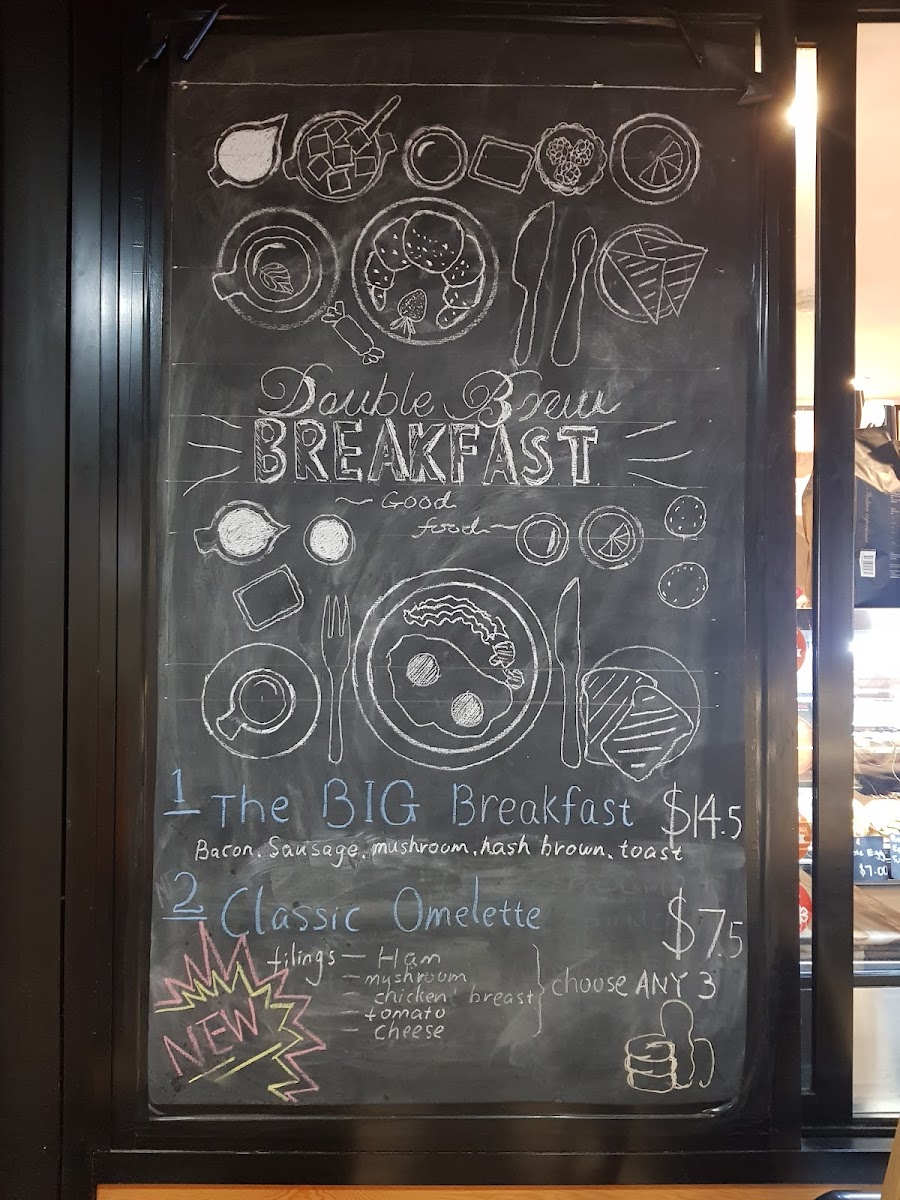 Double Brew
BREAKFAST
~ Good
food ~
1 The BIG Breakfast $14.5
Bacon. Sausage. mushroom. hash brown. toast
2 Classic Omelette $7.5
filings — Ham
— mushroom
— chicken breast
— tomato
— cheese
choose ANY 3
NEW
Egg
$7.00